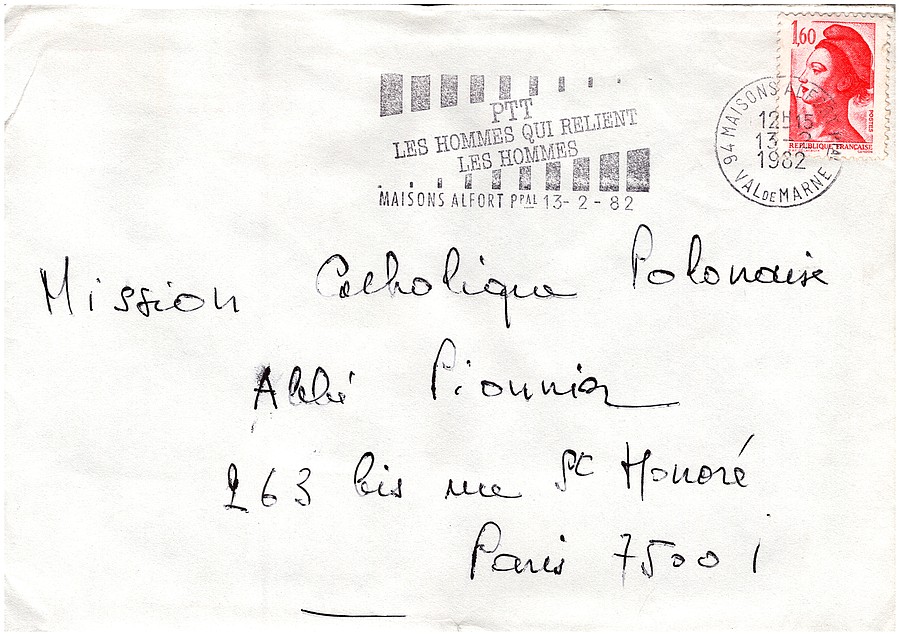 PTT
LES HOMMES QUI RELIENT
LES HOMMES
MAISONS ALFORT PPAL 13-2-82
1,60
POSTES
REPUBLIQUE FRANCAISE
94 MAISONS ALFORT PAL
12H15
13-2
1982
VAL DE MARNE
Mission Catholique Polonaise
Abbé
263 bis rue St Honoré
Paris 75001